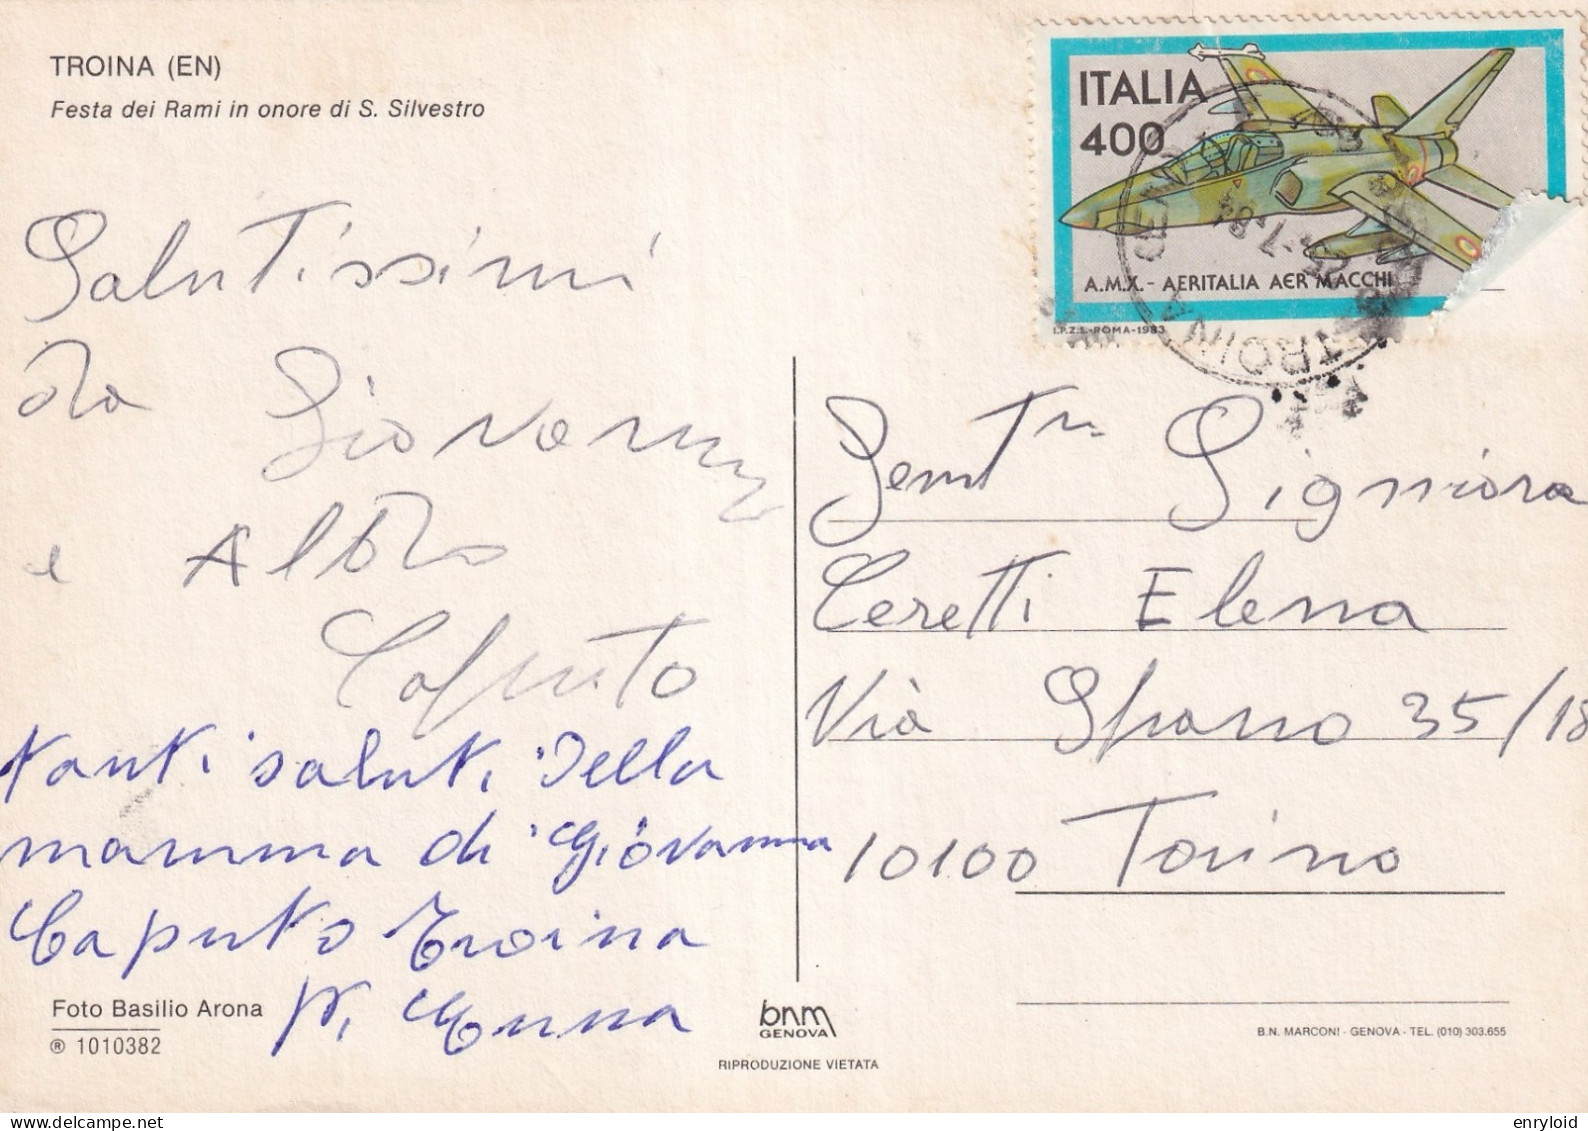 TROINA (EN)
Festa dei Rami in onore di S. Silvestro
ITALIA
400
A.M.X.- AERITALIA AER MACCHI
I.P.Z.S.-ROMA-1983
TROINA
Salutissimi
da Giovanna
e
Caputo
tanti saluti della
mamma di Giovanna
Caputo Troina
Gent ma Signiora
Ceretti Elena
Vià Spano 35/18
10100 Torino
Foto Basilio Arona
® 1010382
bnm
GENOVA
RIPRODUZIONE VIETATA
B.N. MARCONI - GENOVA - TEL. (010) 303.655
enryloid